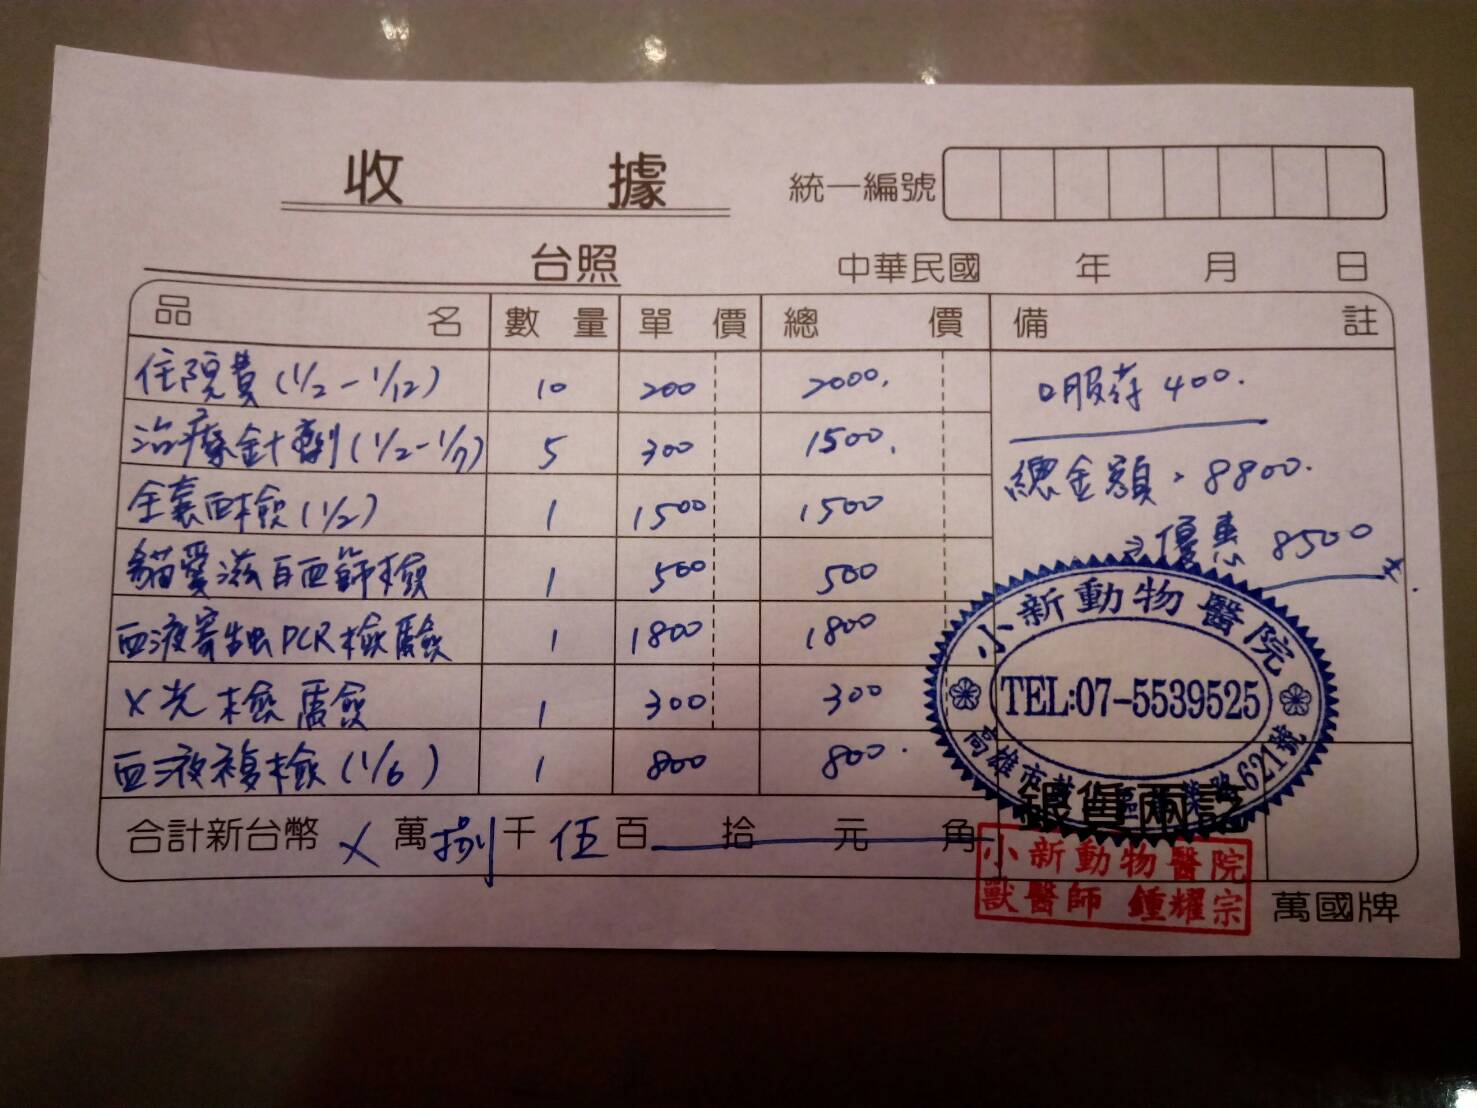 收據
統一編號
台照 中華民國 年 月 日
品名 數量 單價 總價 備註
住院費(1/2-1/12) 10 200 2000.
治療針劑(1/2-1/7) 5 300 1500.
全套血檢(1/2) 1 1500 1500
貓愛滋白血篩檢 1 500 500
血液寄生虫PCR檢驗 1 1800 1800
X光檢驗 1 300 300
血液複檢(1/6) 1 800 800.
口服药 400.
總金額, 8800.
→優惠 8500
合計新台幣 X 萬 捌 千 伍 百 拾 元 角
小新動物醫院
TEL:07-5539525
高雄市 區 路621號
銀貨兩訖
小新動物醫院
獸醫師 鍾耀宗
萬國牌